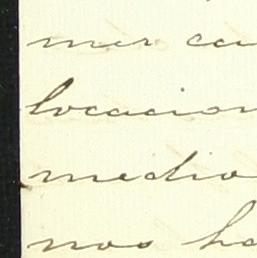 mer ca
locacion
medio
nos ha